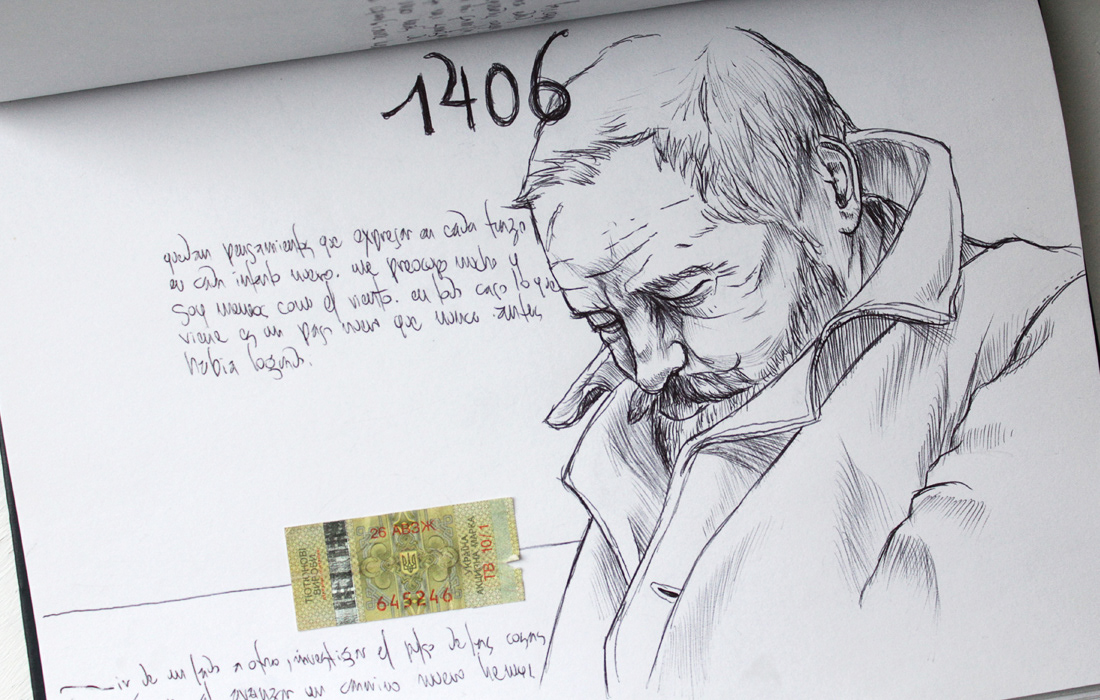 1406
quedan pensamientos que expresar en cada
en cada intento nuevo. me preocupo mucho y
soy menos como el viento. en todo caso lo que
viene es un paso nuevo que nunca antes
había
ТЮТЮНОВІ
ВИРОБИ
26 АВЗЖ
645246
УКРАЇНА
АКЦИЗНА МАРКА
ТВ 10/1
ir de un lado a otro, investigar el pulso de las cosas
avanzar un camino nuevo